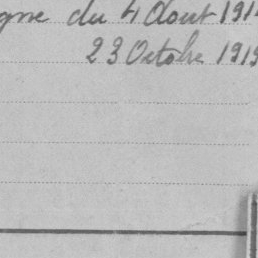 du 4 Aout 191
23 Octobre 1919